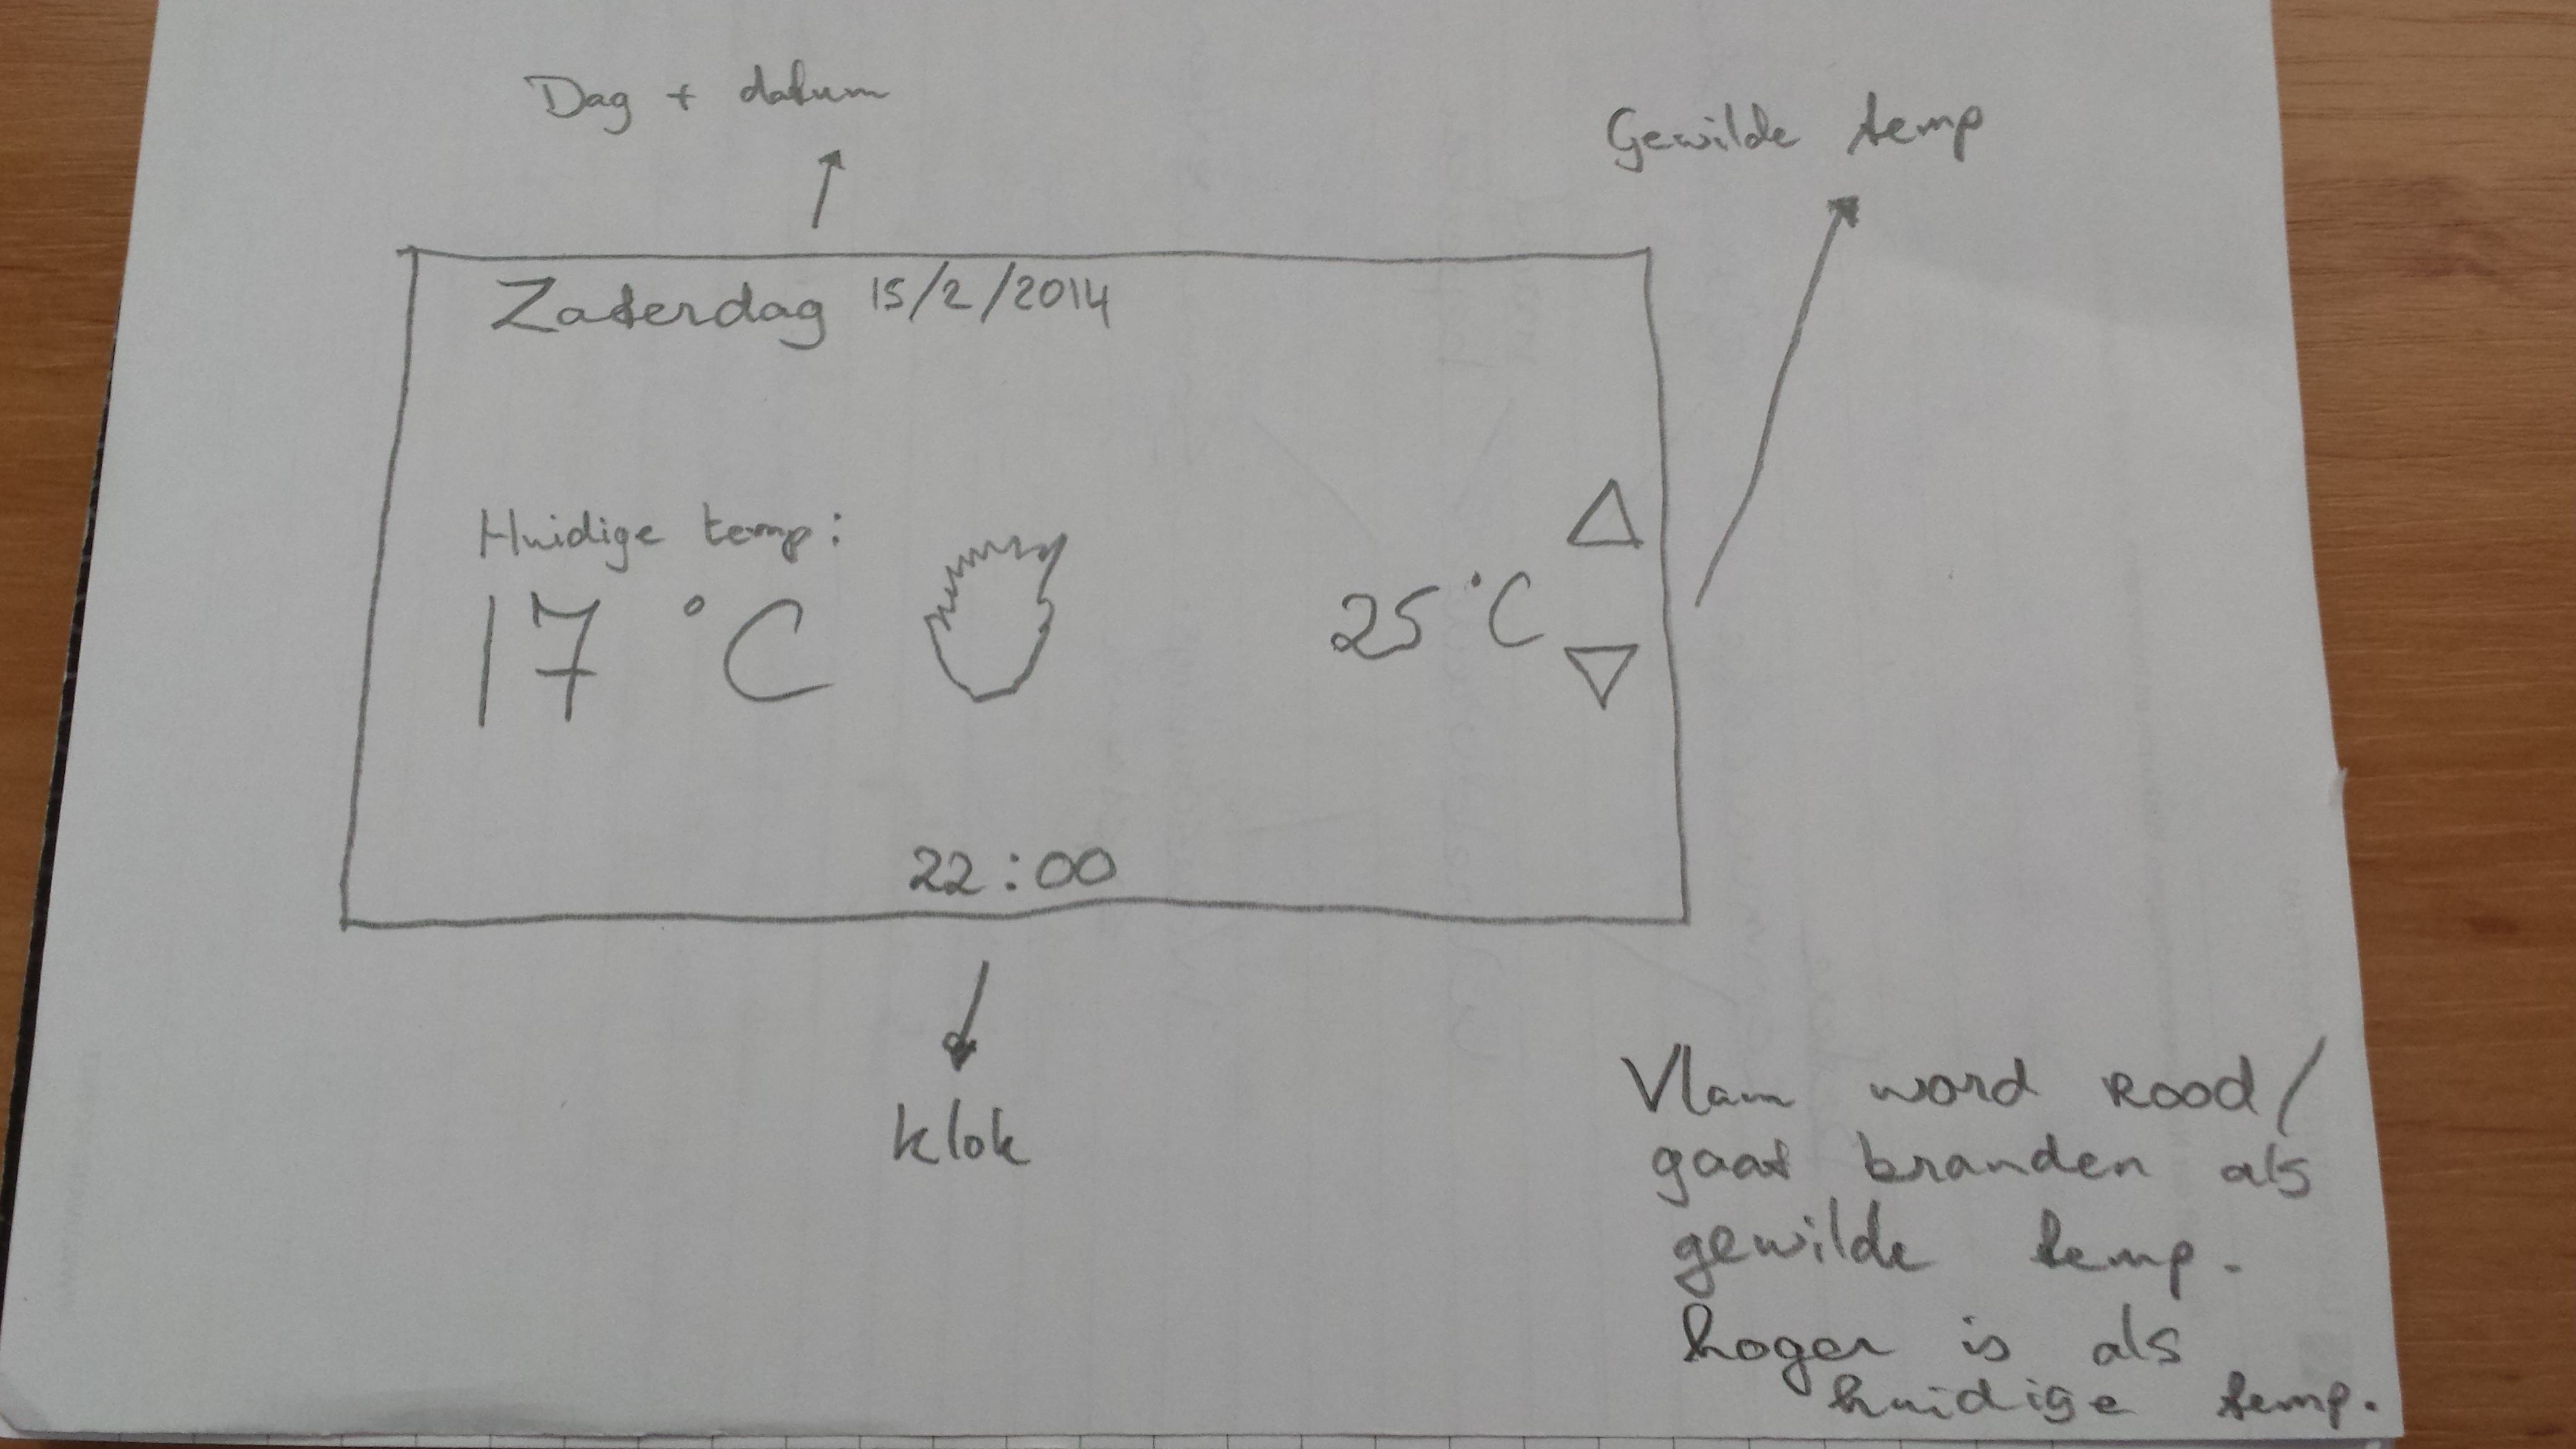 Dag + datum
Gewilde temp
Zaterdag 15/2/2014
Huidige temp:
17 °C
25 °C
22:00
klok
Vlam word Rood/
gaat branden als
gewilde temp.
hoger is als
huidige temp.